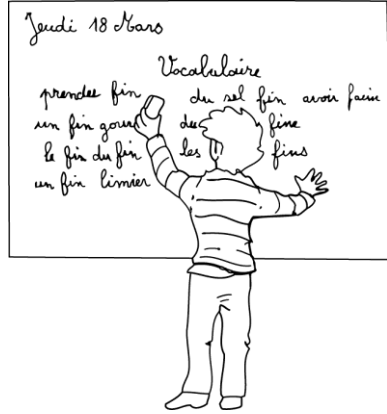 Jeudi 18 Mars
Vocabulaire
prendre fin du sel fin avoir faim
un fin gour fine
le fin du fin les fins
un fin limier